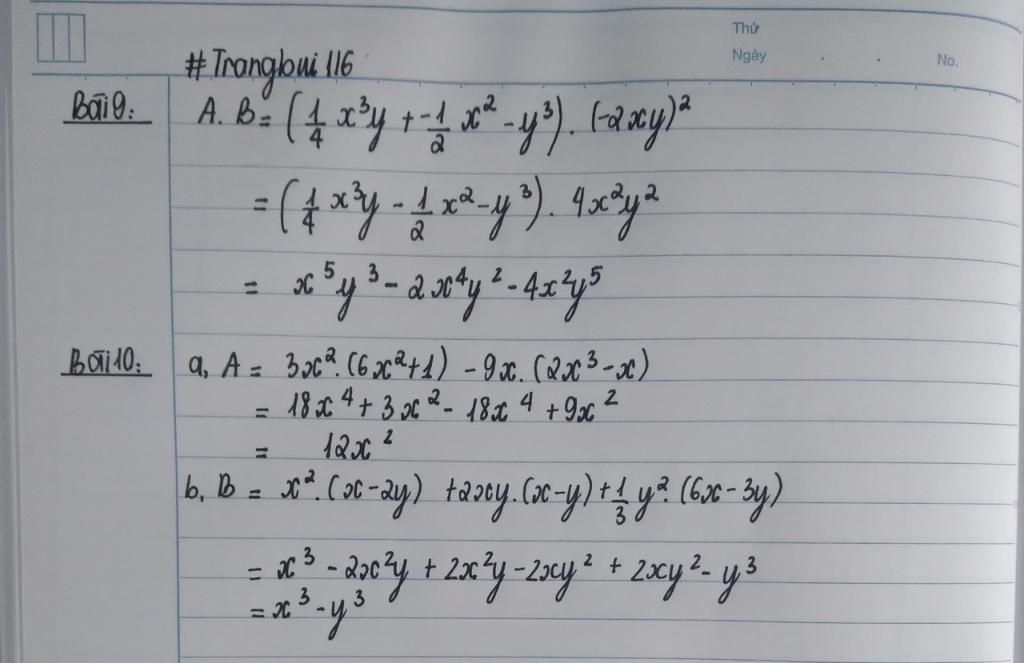 Thứ
Ngày . . No.
#Trangbui 116
Bài 9: A. B = (1/4 x³y + -1/2 x² - y³) . (-2xy)²
= (1/4 x³y - 1/2 x² - y³) . 4x²y²
= x⁵y³ - 2x⁴y² - 4x²y⁵
Bài 10: a, A = 3x². (6x²+1) - 9x. (2x³ - x)
= 18x⁴ + 3x² - 18x⁴ + 9x²
= 12x²
b, B = x². (x - 2y) + 2xy. (x - y) + 1/3 y². (6x - 3y)
= x³ - 2x²y + 2x²y - 2xy² + 2xy² - y³
= x³ - y³